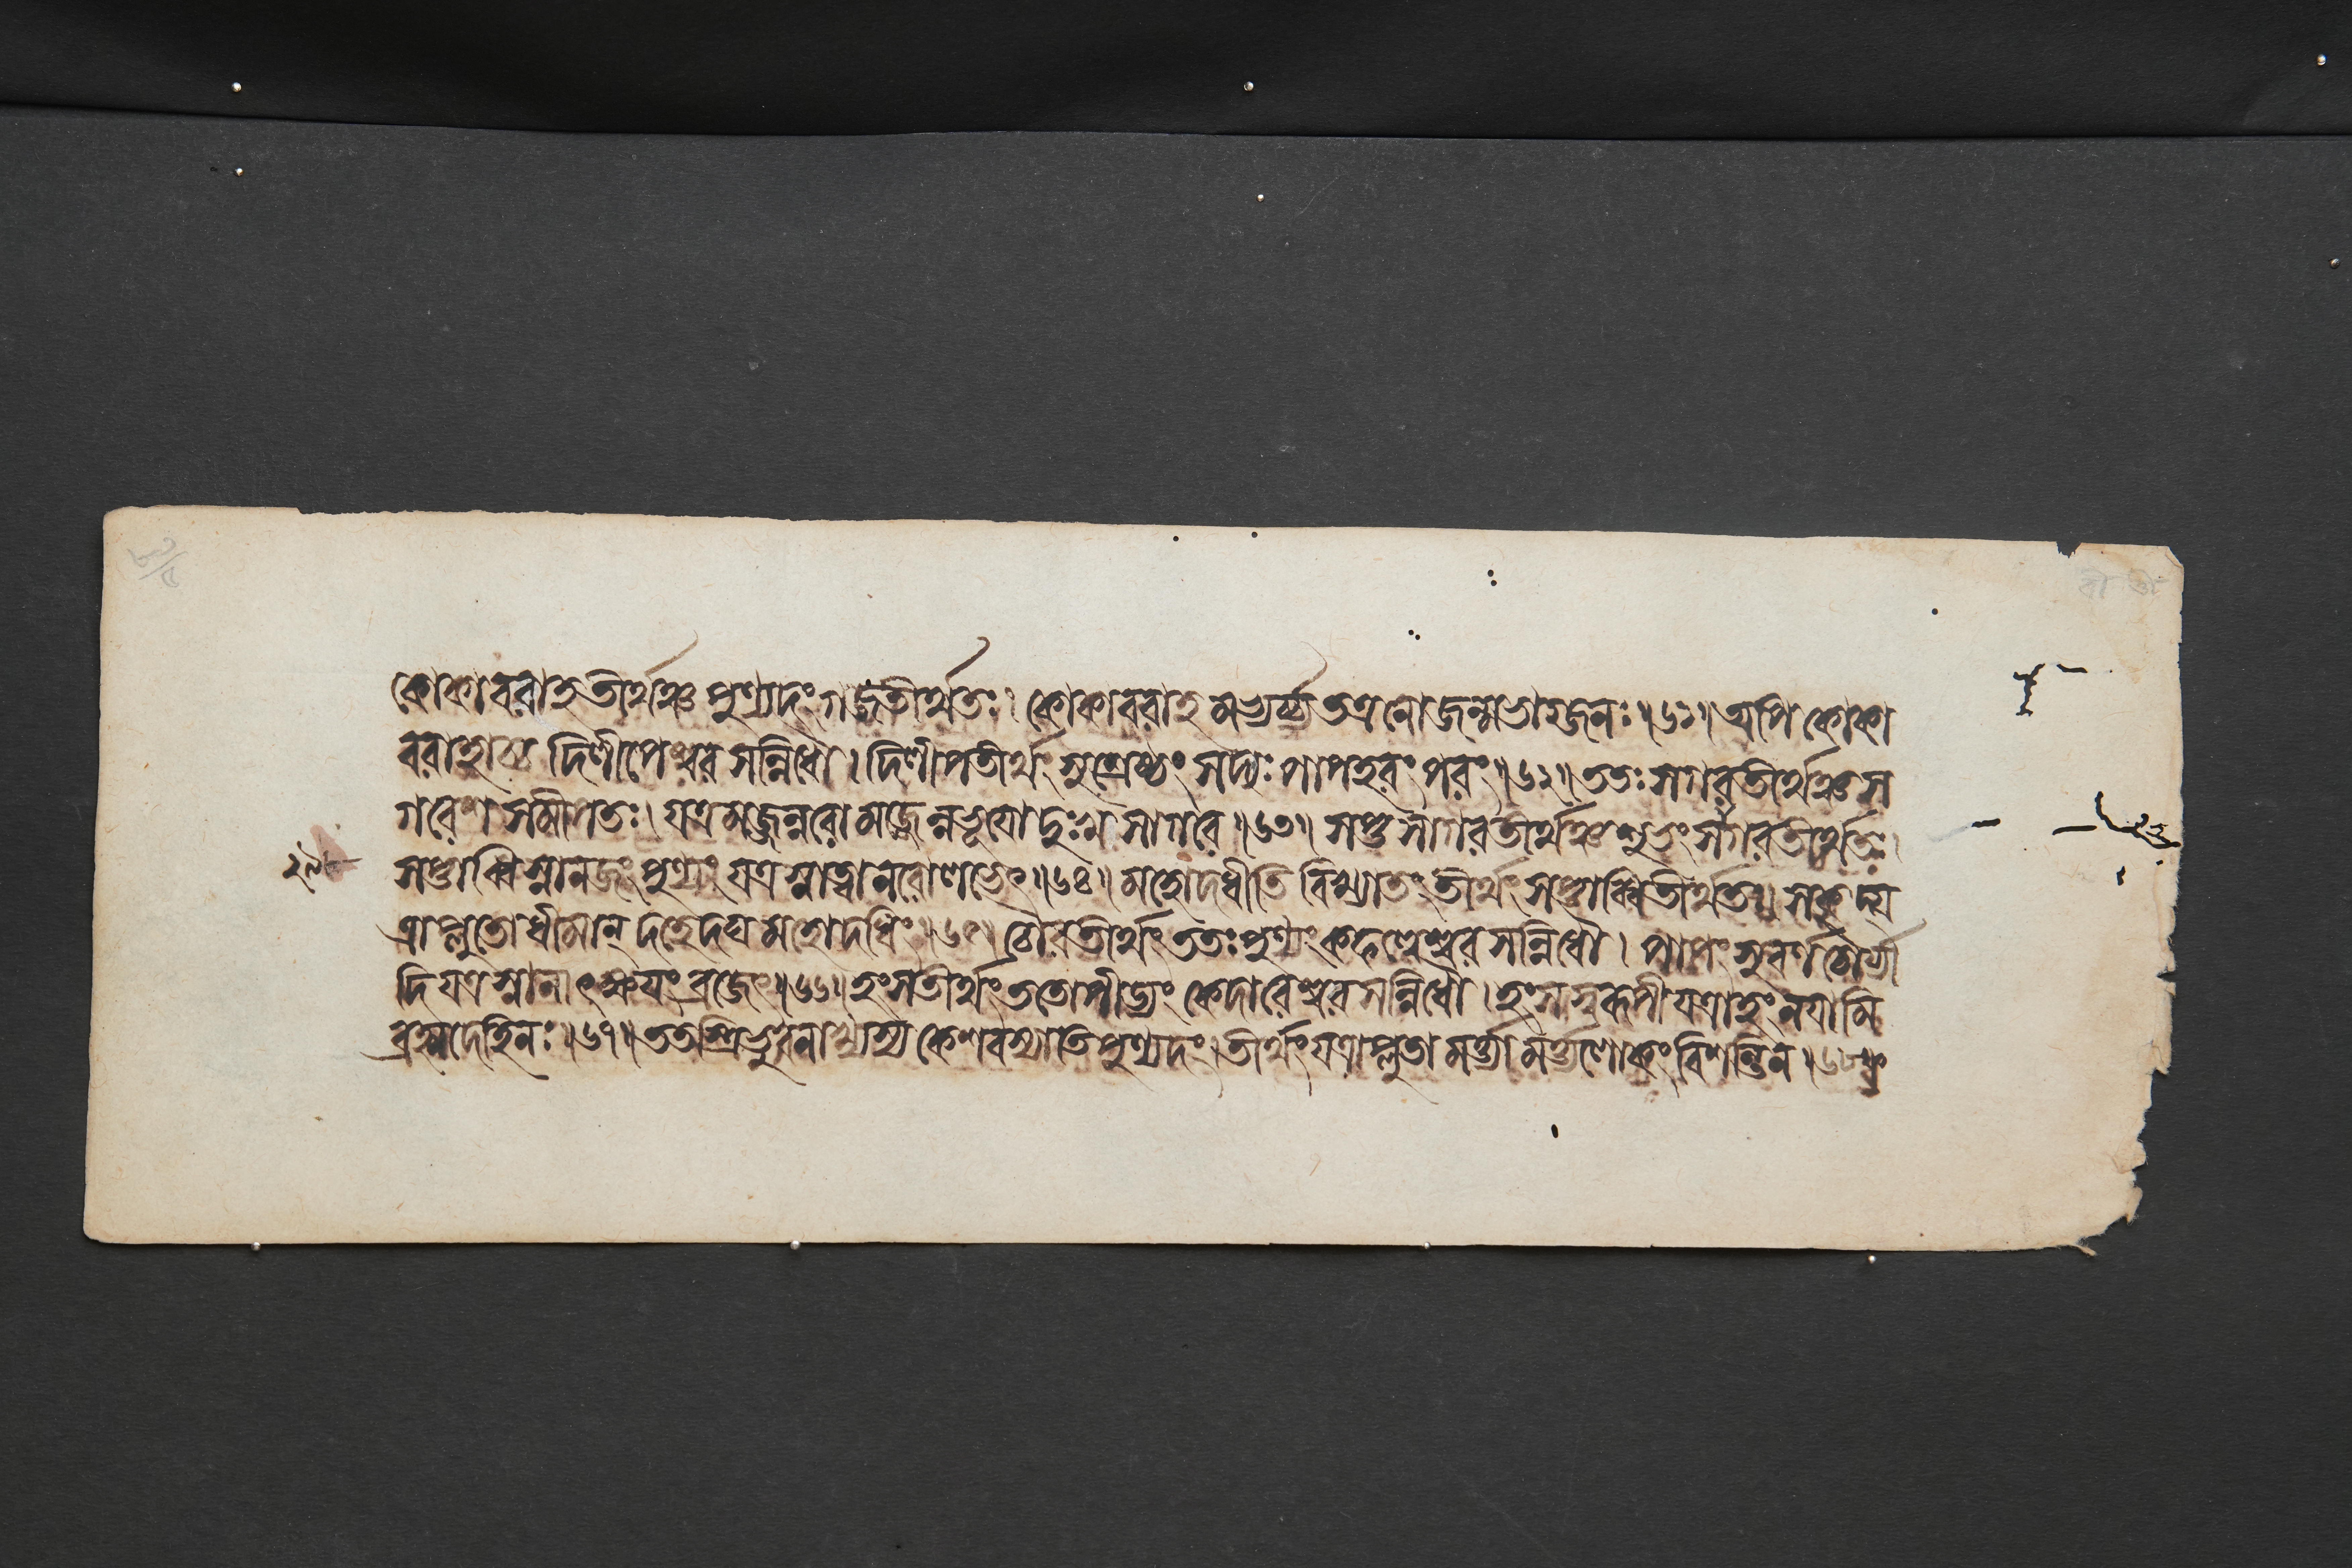 কোকাবরাহতীর্থঞ্চ পুণ্যদং গজতীর্থতঃ। কোকাবরাহমভ্যর্চ্য তত্র নো জন্মভাগ্জনঃ॥৬১॥ অপি কোকা
বরাহাচ্চ দিলীপেশ্বরসন্নিধৌ। দিলীপতীর্থং সুশ্রেষ্ঠং সদ্যঃ পাপহরং পরং॥৬২॥ ততঃ সগরতীর্থঞ্চ স
গরেশসমীপতঃ। যত্র মজ্জন্নরো মজ্জেন্ন ভূয়ো দুঃখসাগরে॥৬৩॥ সপ্তসাগরতীর্থঞ্চ শুভং সগরতীর্থতঃ।
সপ্তাব্ধিস্নানজং পুণ্যং যত্র স্নাত্বা নরো লভেৎ॥৬৪॥ মহোদধীতি বিখ্যাতং তীর্থং সপ্তাব্ধিতীর্থতঃ। সকৃদ্য
ত্রাপ্লুতো ধীমান্ দহেদঘমহোদধিং॥৬৫॥ চৌরতীর্থং ততঃ পুণ্যং কহ্লণেশ্বরসন্নিধৌ। পাপং সুবর্ণচৌর্যা
দি যত্র স্নানাৎ ক্ষয়ং ব্রজেৎ॥৬৬॥ হংসতীর্থং ততোপীড্যং কেদারেশ্বরসন্নিধৌ। হংসস্বরূপী যত্রাহং নয়ামি
ব্রহ্মদেহিনঃ॥৬৭॥ ততস্ত্রিভুবনাখ্যস্য কেশবস্যাতিপুণ্যদং। তীর্থং যত্রাপ্লুতা মর্ত্ত্যা মর্ত্ত্যলোকং বিশন্তি ন॥৬৮॥